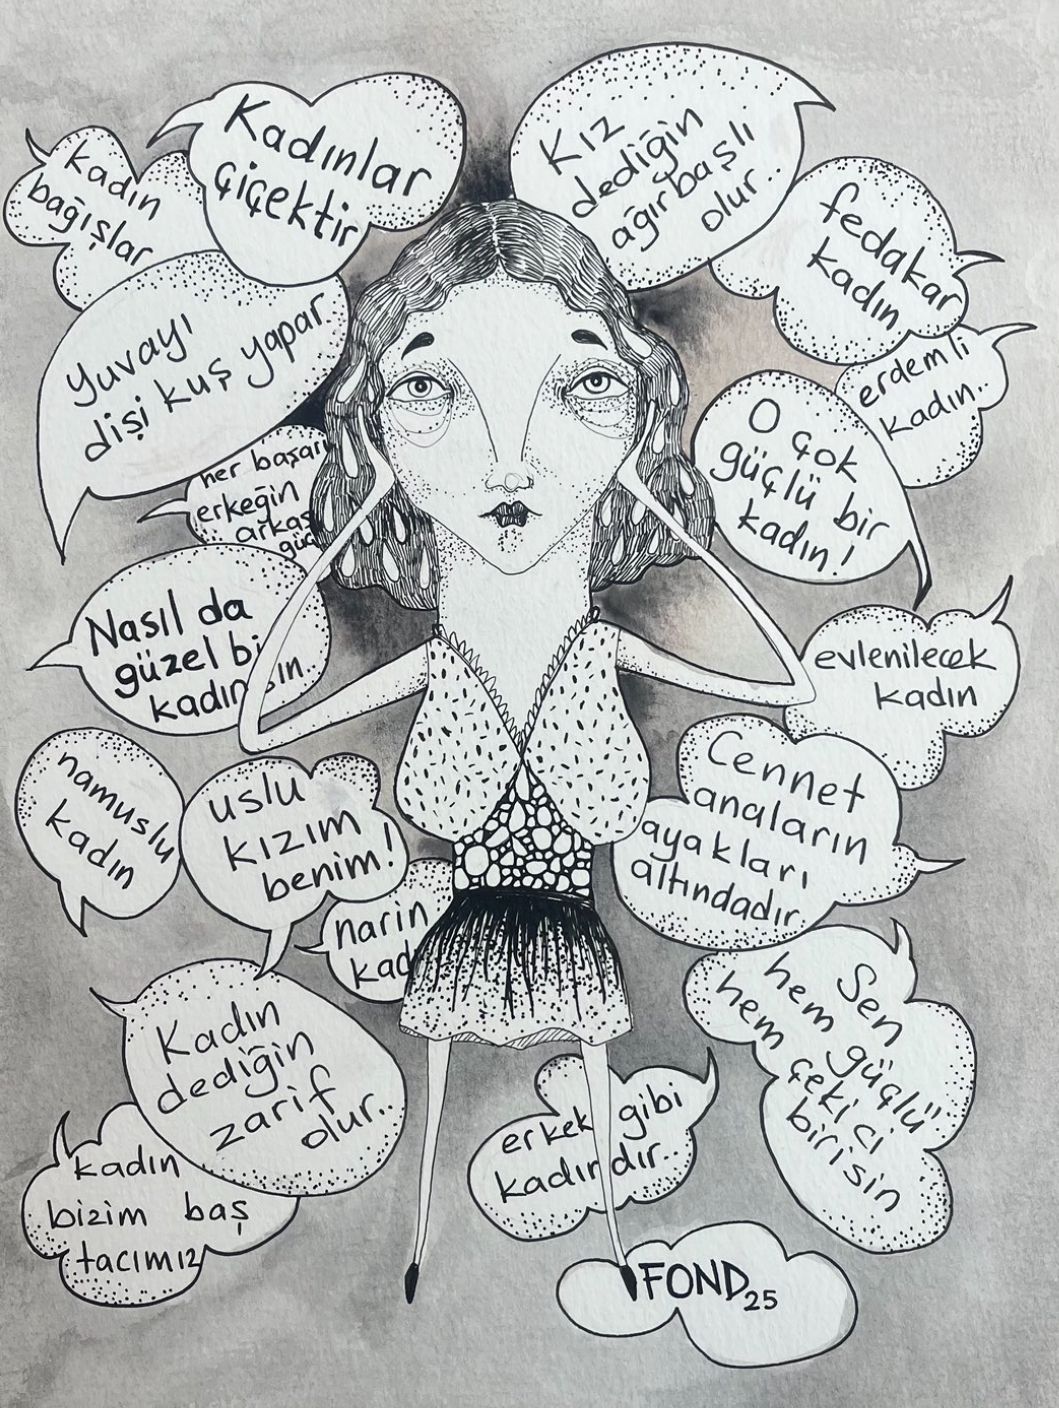 Kadınlar
çiçektir
Kız
dediğin
ağırbaşlı
olur..
kadın
bağışlar
fedakar
kadın
Yuvayı
dişi kuş yapar
erdemli
kadın..
O çok
güçlü bir
kadın!
her başarı
erkeğin
arkas
güç
Nasıl da
güzel bi
kadınsın..
evlenilecek
kadın
namuslu
kadın
uslu
kızım
benim!
Cennet
anaların
ayakları
altındadır.
narin
kad
Sen
hem güçlü
hem çekici
birisin
Kadın
dediğin
zarif
olur..
erkek gibi
kadındır..
kadın
bizim baş
tacımız
FOND25